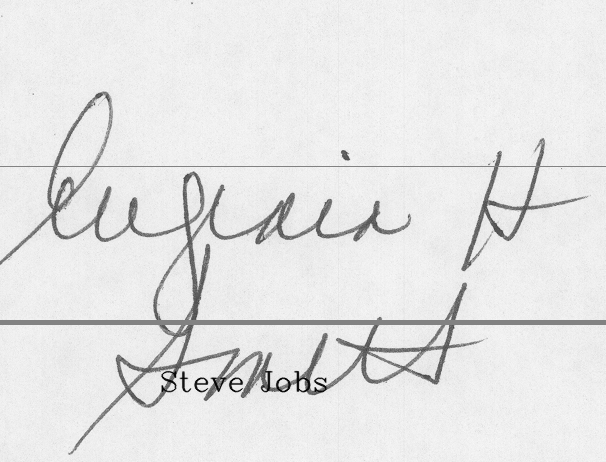 Eugenia H
Smith
Steve Jobs